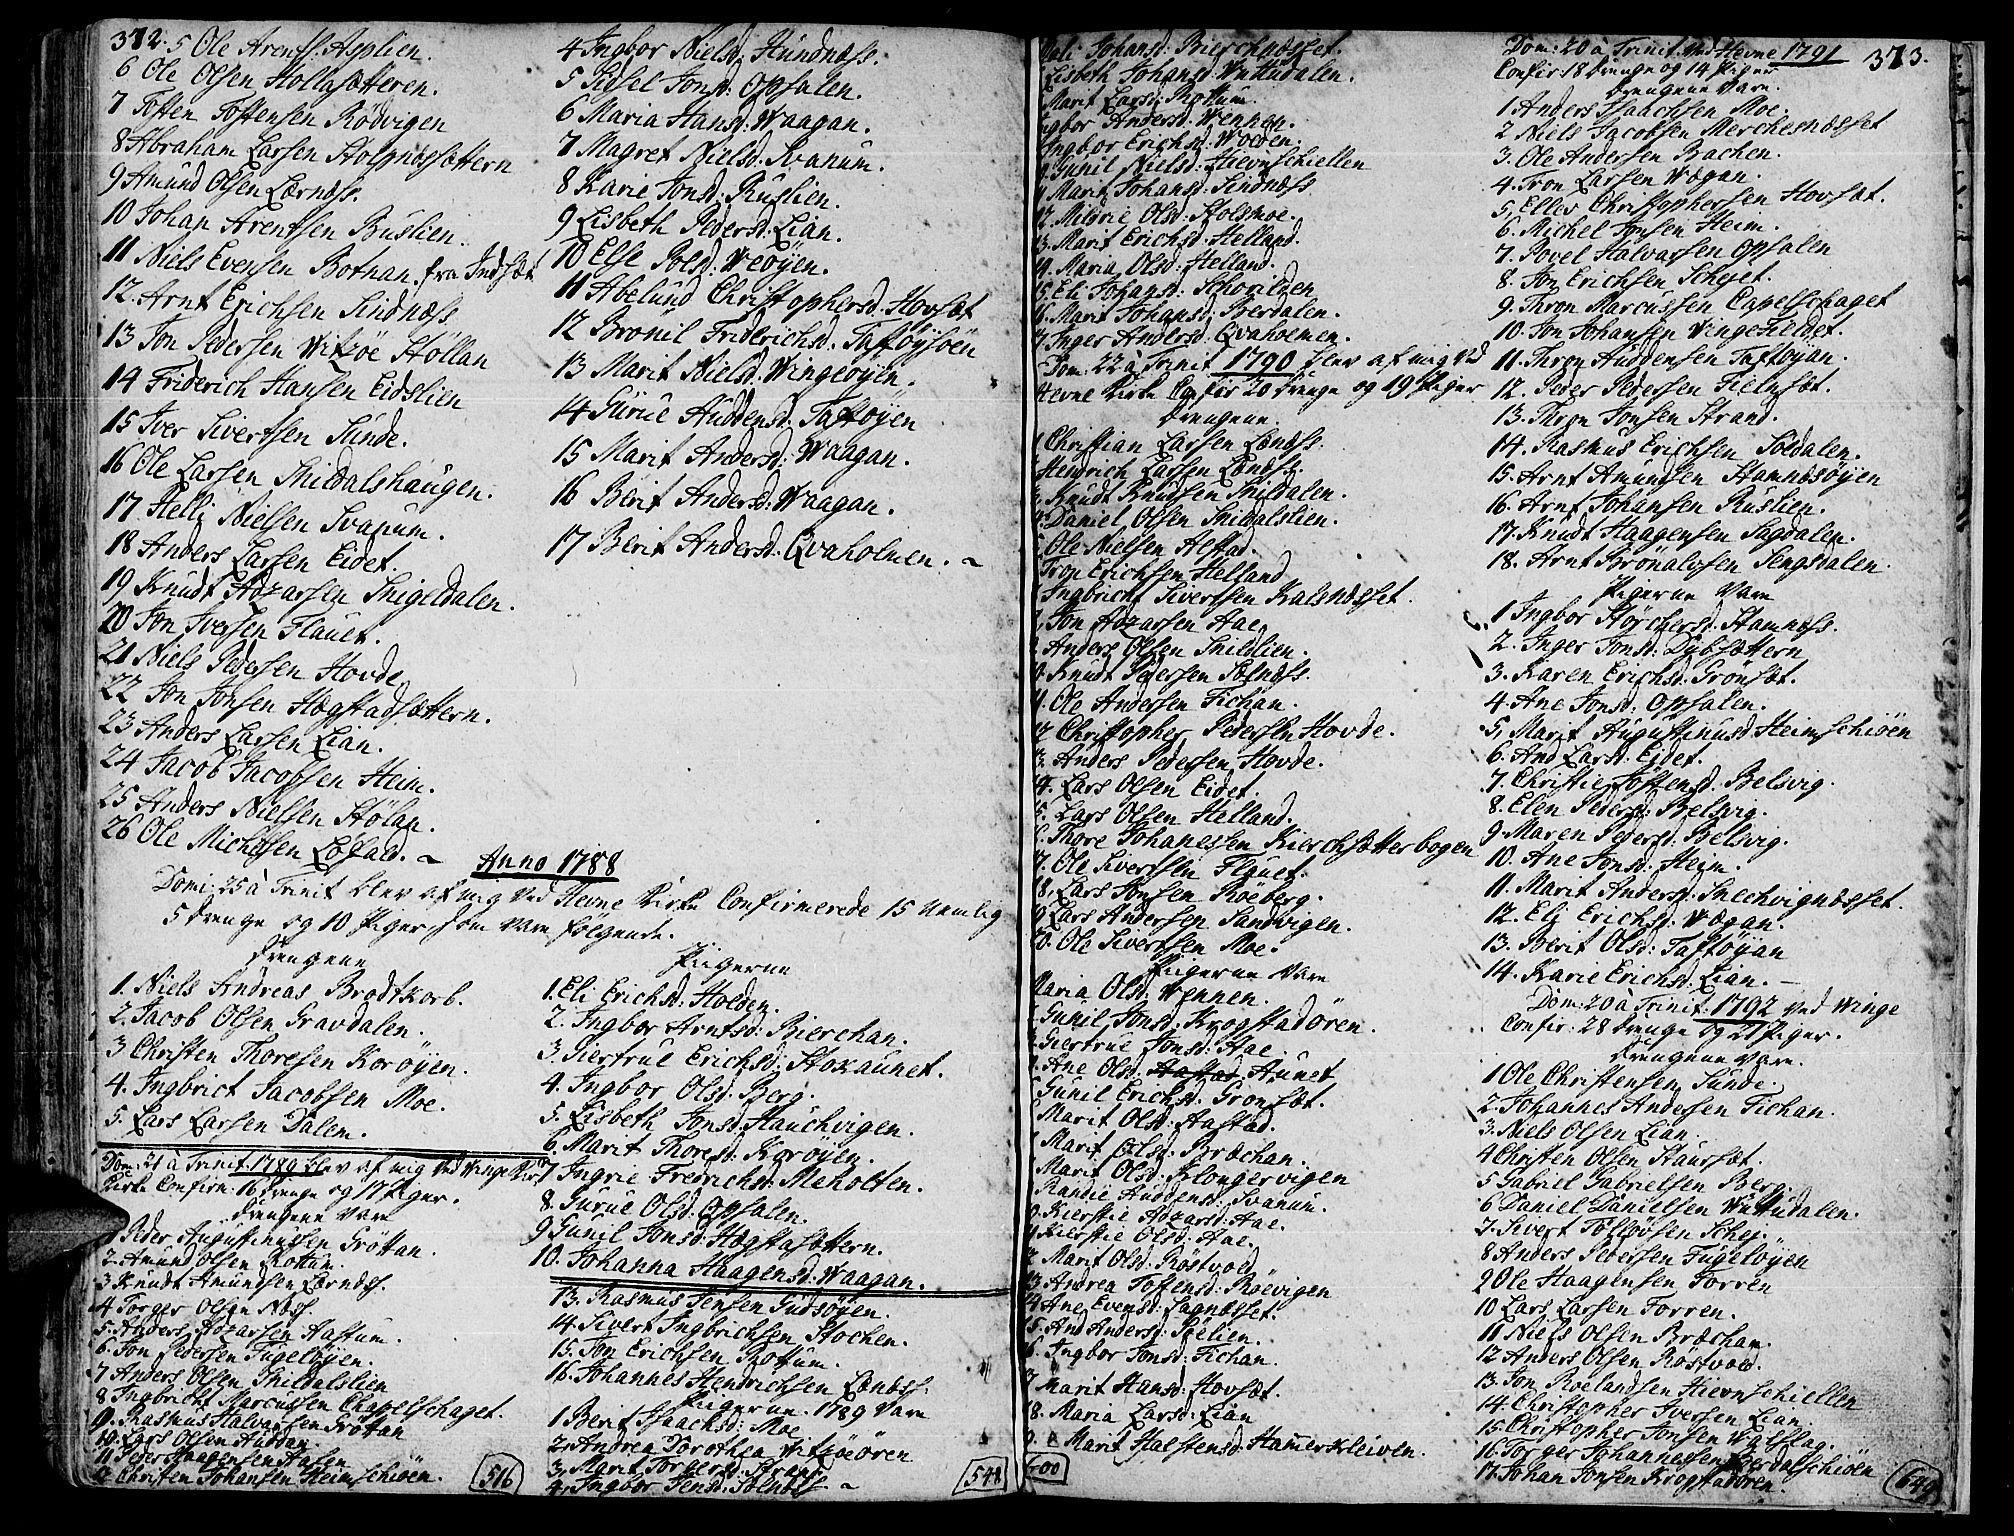 372.
5 Ole Arents: Asplien.
6 Ole Olsen Hollasætteren.
7 Tosten Tostensen Rödvigen
8 Abraham Larsen Stolpnæssættern
9 Amund Olsen Lærnæss.
10 Johan Arentsen Ruslien.
11 Niels Evensen Botnan. fra Indsæt
12. Arnt Erichsen Sindnæss
13 Jon Pedersen Witzöe Stöllan
14 Friderich Hansen Eidslien
15 Iver Sivertsen Sunde.
16 Ole Larsen Snildalshaugen.
17 Helli Nielsen Svanum.
18 Anders Larsen Eidet.
19 Knudt Adzarsen Snigeldalen.
20 Jon Iversen Flauet.
21 Niels Pedersen Hovde
22 Jon Jonsen Hægstadsættern.
23 Anders Larsen Lian.
24 Jacob Jacobsen Heim.
25 Anders Nielsen Stölan.
26 Ole Michelsen
4 Ingbor Nielsd. Kundnæss.
5 Sidsel Jonsd: Opsalen.
6 Maria Hansd: Waagan.
7 Magret Nielsd: Svanum.
8 Karie Jonsd: Ruslien.
9 Lisbeth Pedersd: Lian.
10 Else Polsd: Weöyen.
11 Abelund Christophersd. Hovsæt
12 Bronil Friderichsd: Taftöysöen
13 Marit Nielsd: Wingeöyen.
14 Gurue Auddensd: Taftöyen
15 Marit Andersd: Waagan.
16 Berit Andersd: Waagan.
17 Berit Andersd: Qvaholmen.
Anno 1788
Domi: 25 à Trinit blev af mig ved Hevne Kirke Confirmerede 15 Nemlig
5 Drenge og 10 Piger som vare følgende.
Drengene
1. Niels Andreas Brodtkorb.
2. Jacob Olsen Gravdalen.
3 Christen Thoresen Koröyen.
4. Ingbrict Jacobsen Moe.
5. Lars Larsen Dalem.
Pigerne
1. Eli Erichsd: Holden.
2. Ingbor Arntsd: Bierchan.
3. Giertrue Erichsd: Stokaunet.
4. Ingbor Olsd: Berg.
5. Lisbeth Jonsd: Hauchvigen.
6. Marit Thoresd: Koröyen.
7 Ingrie Fredrichsd: Meholten.
8. Gurue Olsd: Opsalen.
9 Gunil Jonsd: Hægstasættern.
10. Johanna Haagensd: Waagan.
Dom: 21 à Trinit. 1789 blev af mig ved Winge
Kirke Confirm: 16 Drenge og 17 Piger.
Drengene vare
1 Peder Augustinussen Gröttan.
2. Amund Olsen Rottum.
3 Knudt Amundsen Lernæss.
4 Torger Olsen Næss
5. Anders Adzarsen Aastum.
6. Jon Pedersen Fugelöyen.
7 Anders Olsen Snildalslien
8 Ingbricht Marcussen Chapelschaget.
9. Rasmus Halvorsen Gröttan
10. Lars Olsen Auddan.
11 Peder Haagensen Stalen
12 Christen Johansen Heimschiöen.
13. Rasmus Jensen Gudsöyen.
14. Sivert Ingbrichsen Stochen.
15. Jon Erichsen Rottum.
16. Johannes Hendrichsen Lændss.
Pigerne 1789 vare
1 Berit Isaachsd: Moe
2. Andrea Dorothea Witzöeören
3. Marit Torgersd: Strand.
4, Ingbor Jensd:
516
548
Lisbeth Johansd: Wuttudalen.
Marit Larsd: Rottum.
Ingbor Andersd: Wennen.
Ingbor Erichsd: Woden.
Gunil Nielsd: Hievnschiellen
Marit Johansd: Sindnæss
12. Mildrie Olsd: Stolsmoe.
13. Marit Erichsd: Helland.
14. Maria Olsd: Helland.
15. Eli Johansd: Schorilden
16. Marit Johansd: Bverdalen.
17. Inger Andersd: Qvaholmen.
Dom: 22 à Trinit 1790 blev af mig ved
Hevne Kirke Confir 20 Drenge og 19 Piger
Drengene
Christian Larsen Lændss.
Hendrich Larsen Lændss.
Knudt Knudsen Snildalen.
Daniel Olsen Snildalslien.
Ole Nielsen Aestad.
Tron Erichsen Helland
Ingbricht Sivertsen Kalsnæsset.
Jon Adzarsen Hae
Anders Olsen Snilslien.
10. Knudt Pedersen Selnæss.
11. Ole Andersen Fichan.
12 Christopher Pedersen Hovde.
13. Anders Pedersen Hovde.
14. Lars Olsen Eidet.
15. Lars Olsen Helland.
16. Thore Johanessen Kierchsætterbogen
17. Ole Sivertsen Flauet.
18. Lars Jonsen Röeberg.
19 Lars Andersen Sandvigen.
20. Ole Sivertsen Moe.
Pigerne vare
Maria Olsd: Wennen.
Gunil Jonsd: Krogstadören.
Giertrue Jonsd: Hae
Ane Olsd: Aastad Aunet
Gunil Erichsd. Grönsæt.
Marit Olsd: Aastad.
Marit Olsd: Bræchan.
Marit Olsd: Klongervigen
Randie Auddensd: Svanum.
Kierstie Adzarsd: Hae.
Kierstie Olsd: Hae.
Marit Olsd: Röstvold
13 Andrea Tostensd: Röevigen
14 Ane Evensd: Sagnæsset.
15. And Andersd: Sælien.
16. Ingbor Jonsd: Fichan.
17 Marit Hansd: Hovsæt.
18. Maria Larsd: Lian
Marit Halstensd: Hamerkleiven.
600
Dom: 20 à Trinit. ved Hevne 1791
373.
Confir 18 Drenge og 14 Piger
Drengene vare.
1. Anders Isaachsen Moe.
2 Niels Jacobsen Merchesnæsset
3. Ole Andersen Bachen.
4. Tron Larsen Wægan.
5, Ellev Christophersen Hovsæt.
6. Michel Jonsen Heim.
7. Povel Halvorsen Opsalen
8. Jon Erichsen Scheyet.
9. Thron Marcussen Capelschaget
10. Jon Johansen Wingesteldet.
11. Thron Auddensen Taftöyan.
12. Peder Pedersen Fielnsæt.
13. Thron Jonsen Strand.
14. Rasmus Erichsen Söedalen.
15. Arnt Amundsen Hamnæsöyen
16. Arnt Johansen Ruslien.
17. Knudt Haagensen Sagdalen.
18. Arnt Brönalvsen Sengsdalen.
Pigerne vare
1 Ingbor Störchersd. Hamnæss.
2. Inger Jonsd: Dybsættern
3. Karen Erichsd: Grönsæt.
4. Ane Jonsd: Opsalen.
5, Marit Augustinusd Heimschiöen
6. And Larsd: Eidet.
7. Christie Tostensd. Belsvig.
8. Elen Pedersd: Belsvig.
9. Maren Pedersd: Belsvig.
10. Ane Jonsd: Heim.
11. Marit Andersd: Snechvignæsset.
12. Eli Erichsd: Wægan.
13. Berit Olsd: Taftöyan
14. Karie Erichsd: Lian.
Dom: 20 à Trinit. 1792 ved Winge
Confir: 28 Drenge og 21 Piger.
Drengene vare.
1 Ole Christensen Sunde.
2. Johannes Andersen Fichan.
3. Niels Olsen Lian.
4 Christen Olsen Staursæt.
5 Gabriel Gabrielsen Berg.
6 Daniel Danielsen Wuttudalen.
7. Sivert Tollöfsen Schey.
8 Anders Pedersen Fugelöyen
9 Ole Haagensen Forren
10 Lars Larsen Forren.
11 Niels Olsen Bræchan.
12 Anders Olsen Röstvold.
13. Jon Roelandsen Hievnschiellen
14. Christopher Iversen Lian.
15. Christopher Jonsen Walslag.
16. Torger Johannessen Bverdalschiöen
17. Johan Jonsen Krogstadören.
549